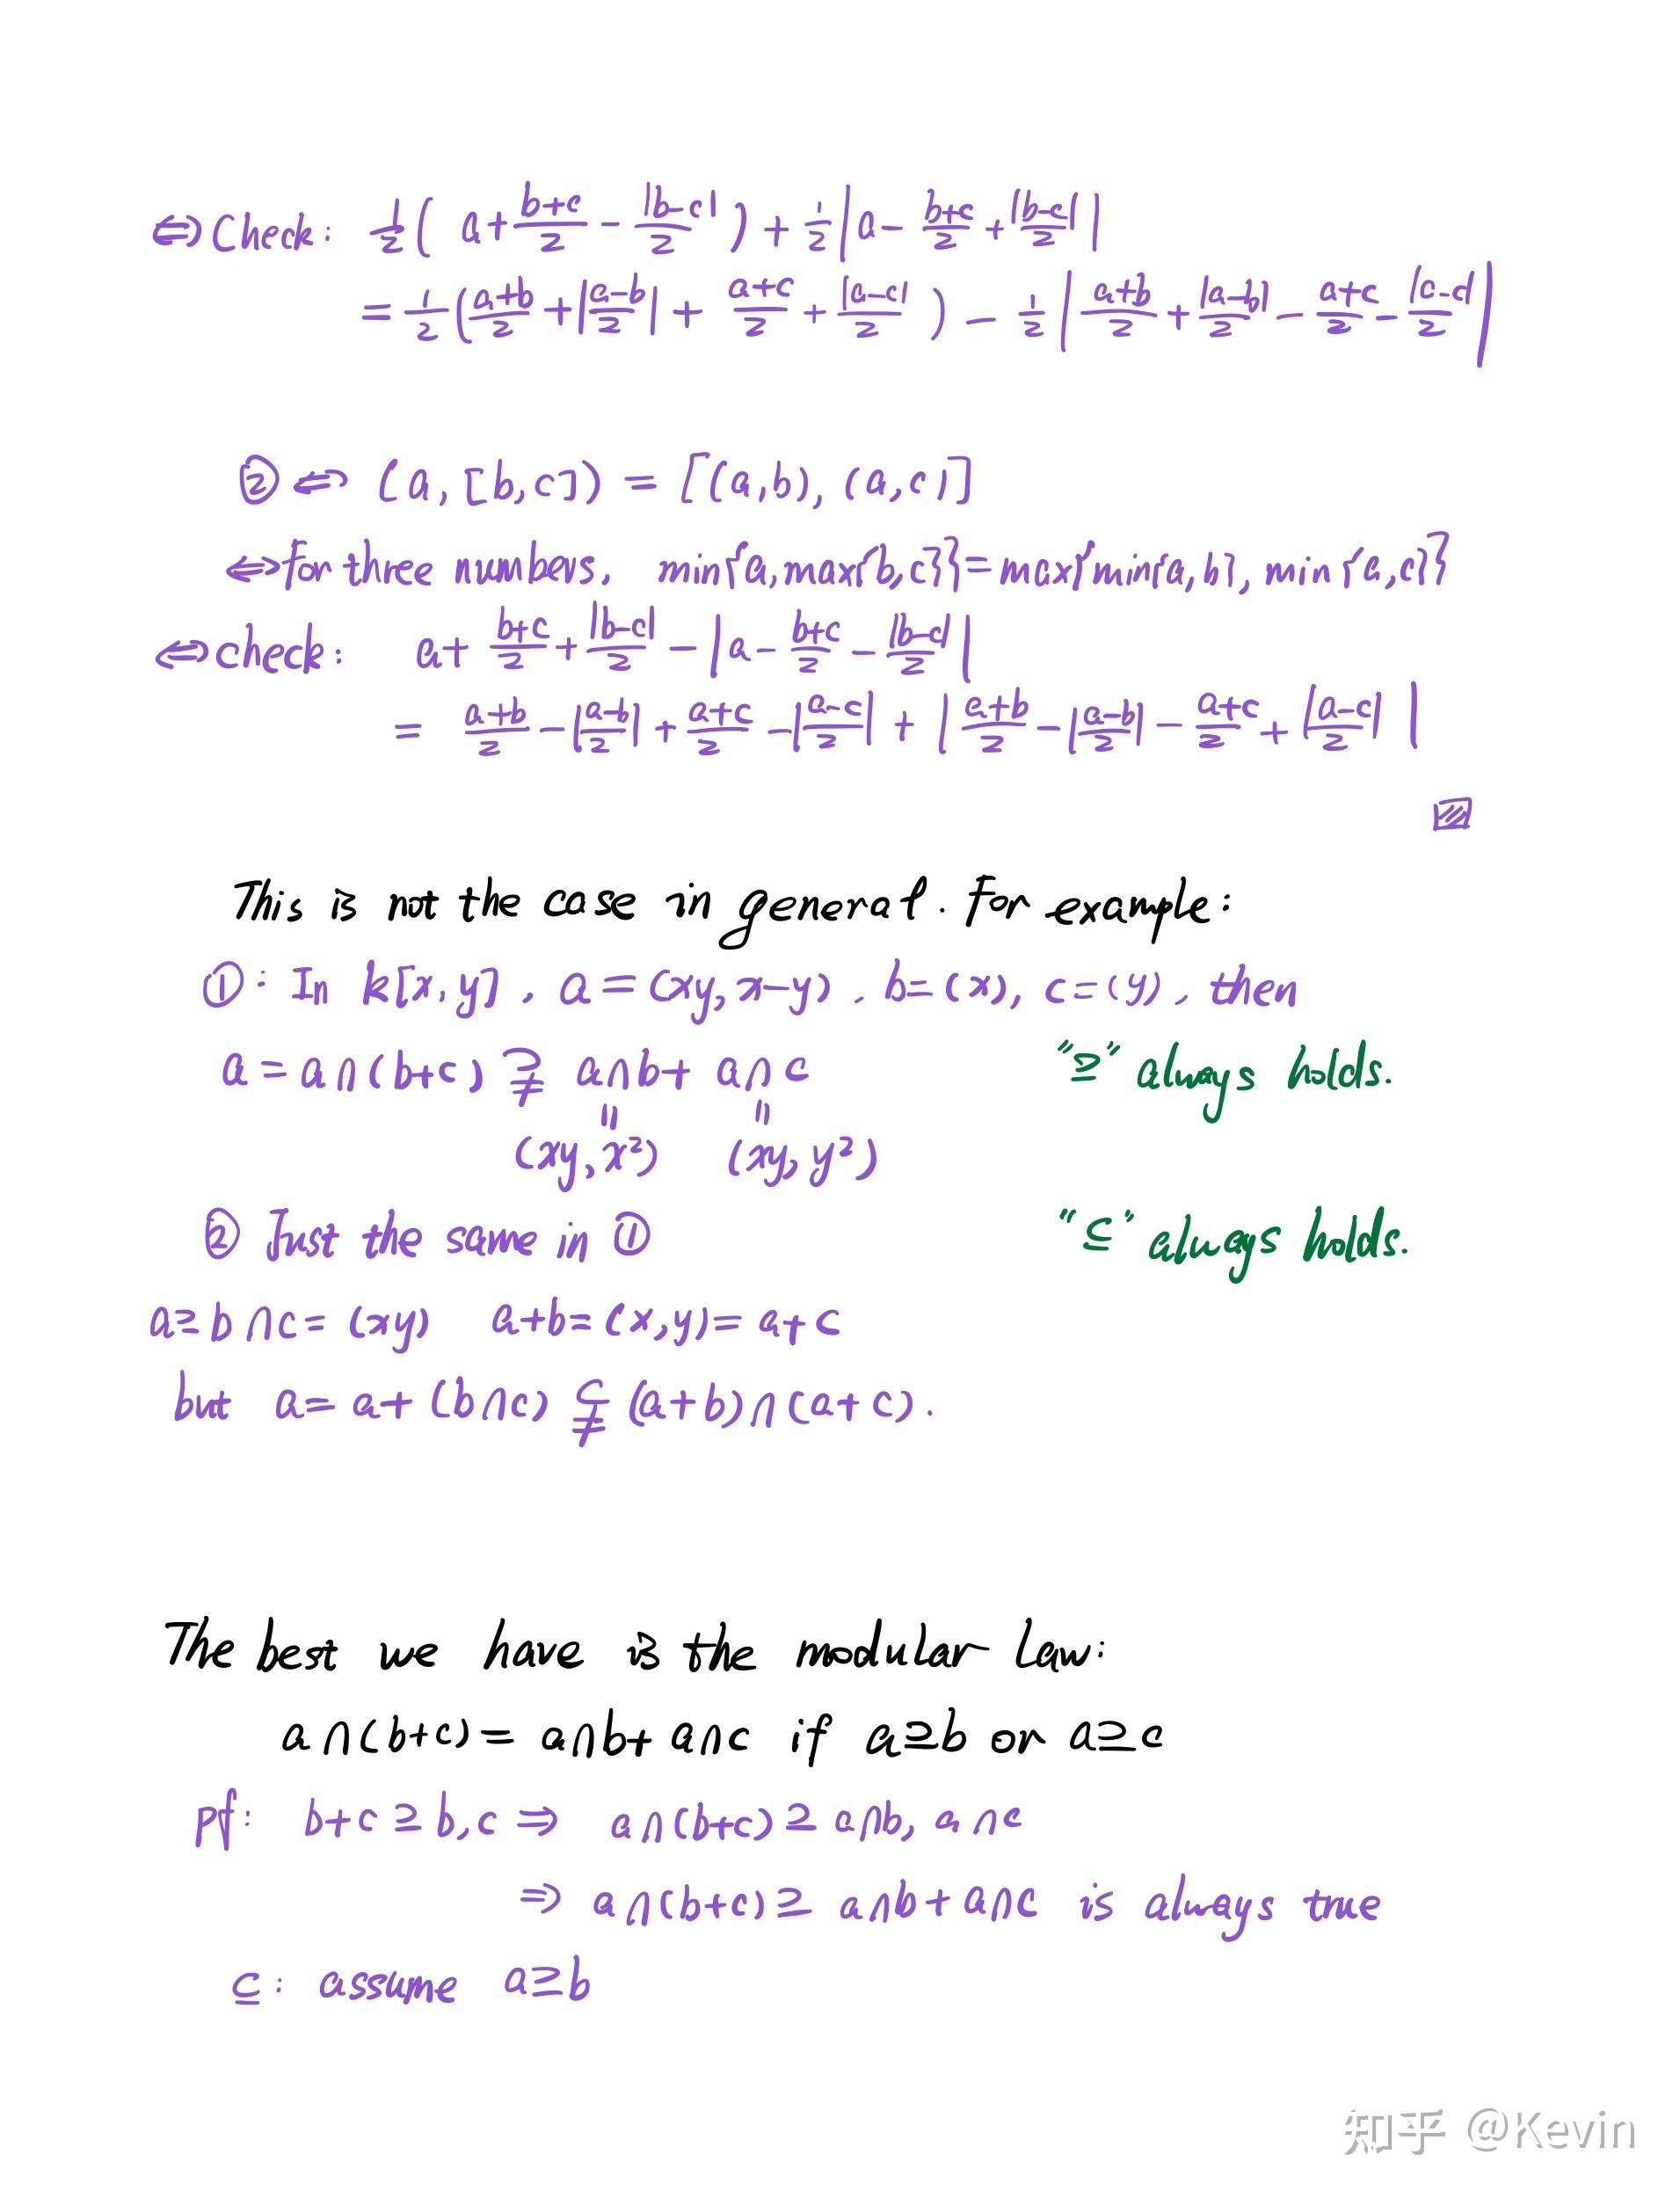 ⇔ Check: 1/2 ( a + (b+c)/2 − |b−c|/2 ) + 1/2 | a − (b+c)/2 + |b−c|/2 |
= 1/2 ( (a+b)/2 + |(a−b)/2| + (a+c)/2 + |a−c|/2 ) − 1/2 | (a+b)/2 + |a−b|/2 − (a+c)/2 − |a−c|/2 |
② ⇔ (a, [b,c]) = [(a,b), (a,c)]
⇔ for three numbers, min{a, max{b,c}} = max{min{a,b}, min{a,c}}
⇔ check: a + (b+c)/2 + |b−c|/2 − | a − (b+c)/2 − |b−c|/2 |
= (a+b)/2 − |(a−b)/2| + (a+c)/2 − |(a−c)/2| + | (a+b)/2 − |(a−b)/2| − (a+c)/2 + |(a−c)/2| |
This is not the case in general. For example:
①: In k[x,y], a=(xy, x−y). b=(x), c=(y), then
a = a∩(b+c) ⊋ a∩b + a∩c "⊇" always holds.
= =
(xy, x²) (xy, y²)
② Just the same in ① "⊆" always holds.
a⊇b∩c = (xy) a+b=(x,y)=a+c
but a = a+(b∩c) ⊊ (a+b)∩(a+c).
The best we have is the modular law:
a∩(b+c) = a∩b + a∩c if a⊇b or a⊇c
pf: b+c ⊇ b,c ⇒ a∩(b+c) ⊇ a∩b, a∩c
⇒ a∩(b+c) ⊇ a∩b + a∩c is always true
⊆: assume a⊇b
知乎 @Kevin